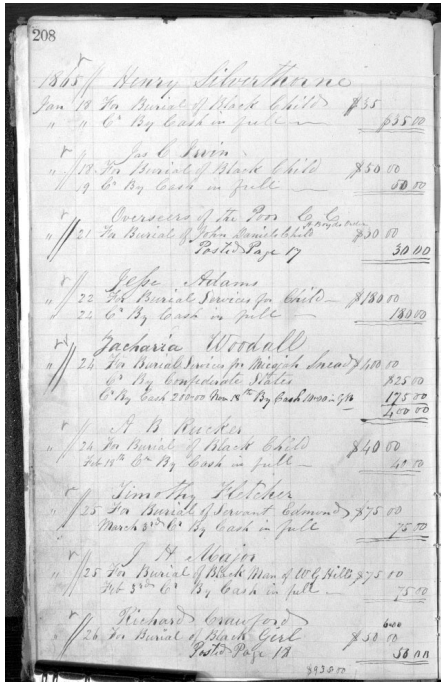 208
1865 // Henry Silverthorne
Jan 18 For Burial of Black Child $35
" " Cr By Cash in full — $35 00
Jas C Irvin
" // 18 For Burial of Black Child $50 00
19 Cr By Cash in full 50 00
Overseers of the Poor C. C.
" // 21 For Burial of John Daniels Child $30 00
Posted Page 17 30 00
Jesse Adams
" // 22 For Burial Services for Child — $180 00
" 24 Cr By Cash in full — 180 00
Zacharia Woodall
" // 24 For Burial Services for Micajah Snead $400 00
Cr By Confederate States $25 00
Cr By Cash 200.00 Nov 18th By Cash 175 00
400 00
A B Rucker
" // 24 For Burial of Black Child $40 00
Feb 18th Cr By Cash in full — 40 00
Timothy Fletcher
" // 25 For Burial of Servant Edmond $75 00
March 3rd Cr By Cash in full 75 00
J H Major
" // 25 For Burial of Black Man of W G Hills $75 00
Feb 3rd Cr By Cash in full — 75 00
Richard Crawford
" // 26 For Burial of Black Girl $50 00
Posted Page 18 50 00
$935.00